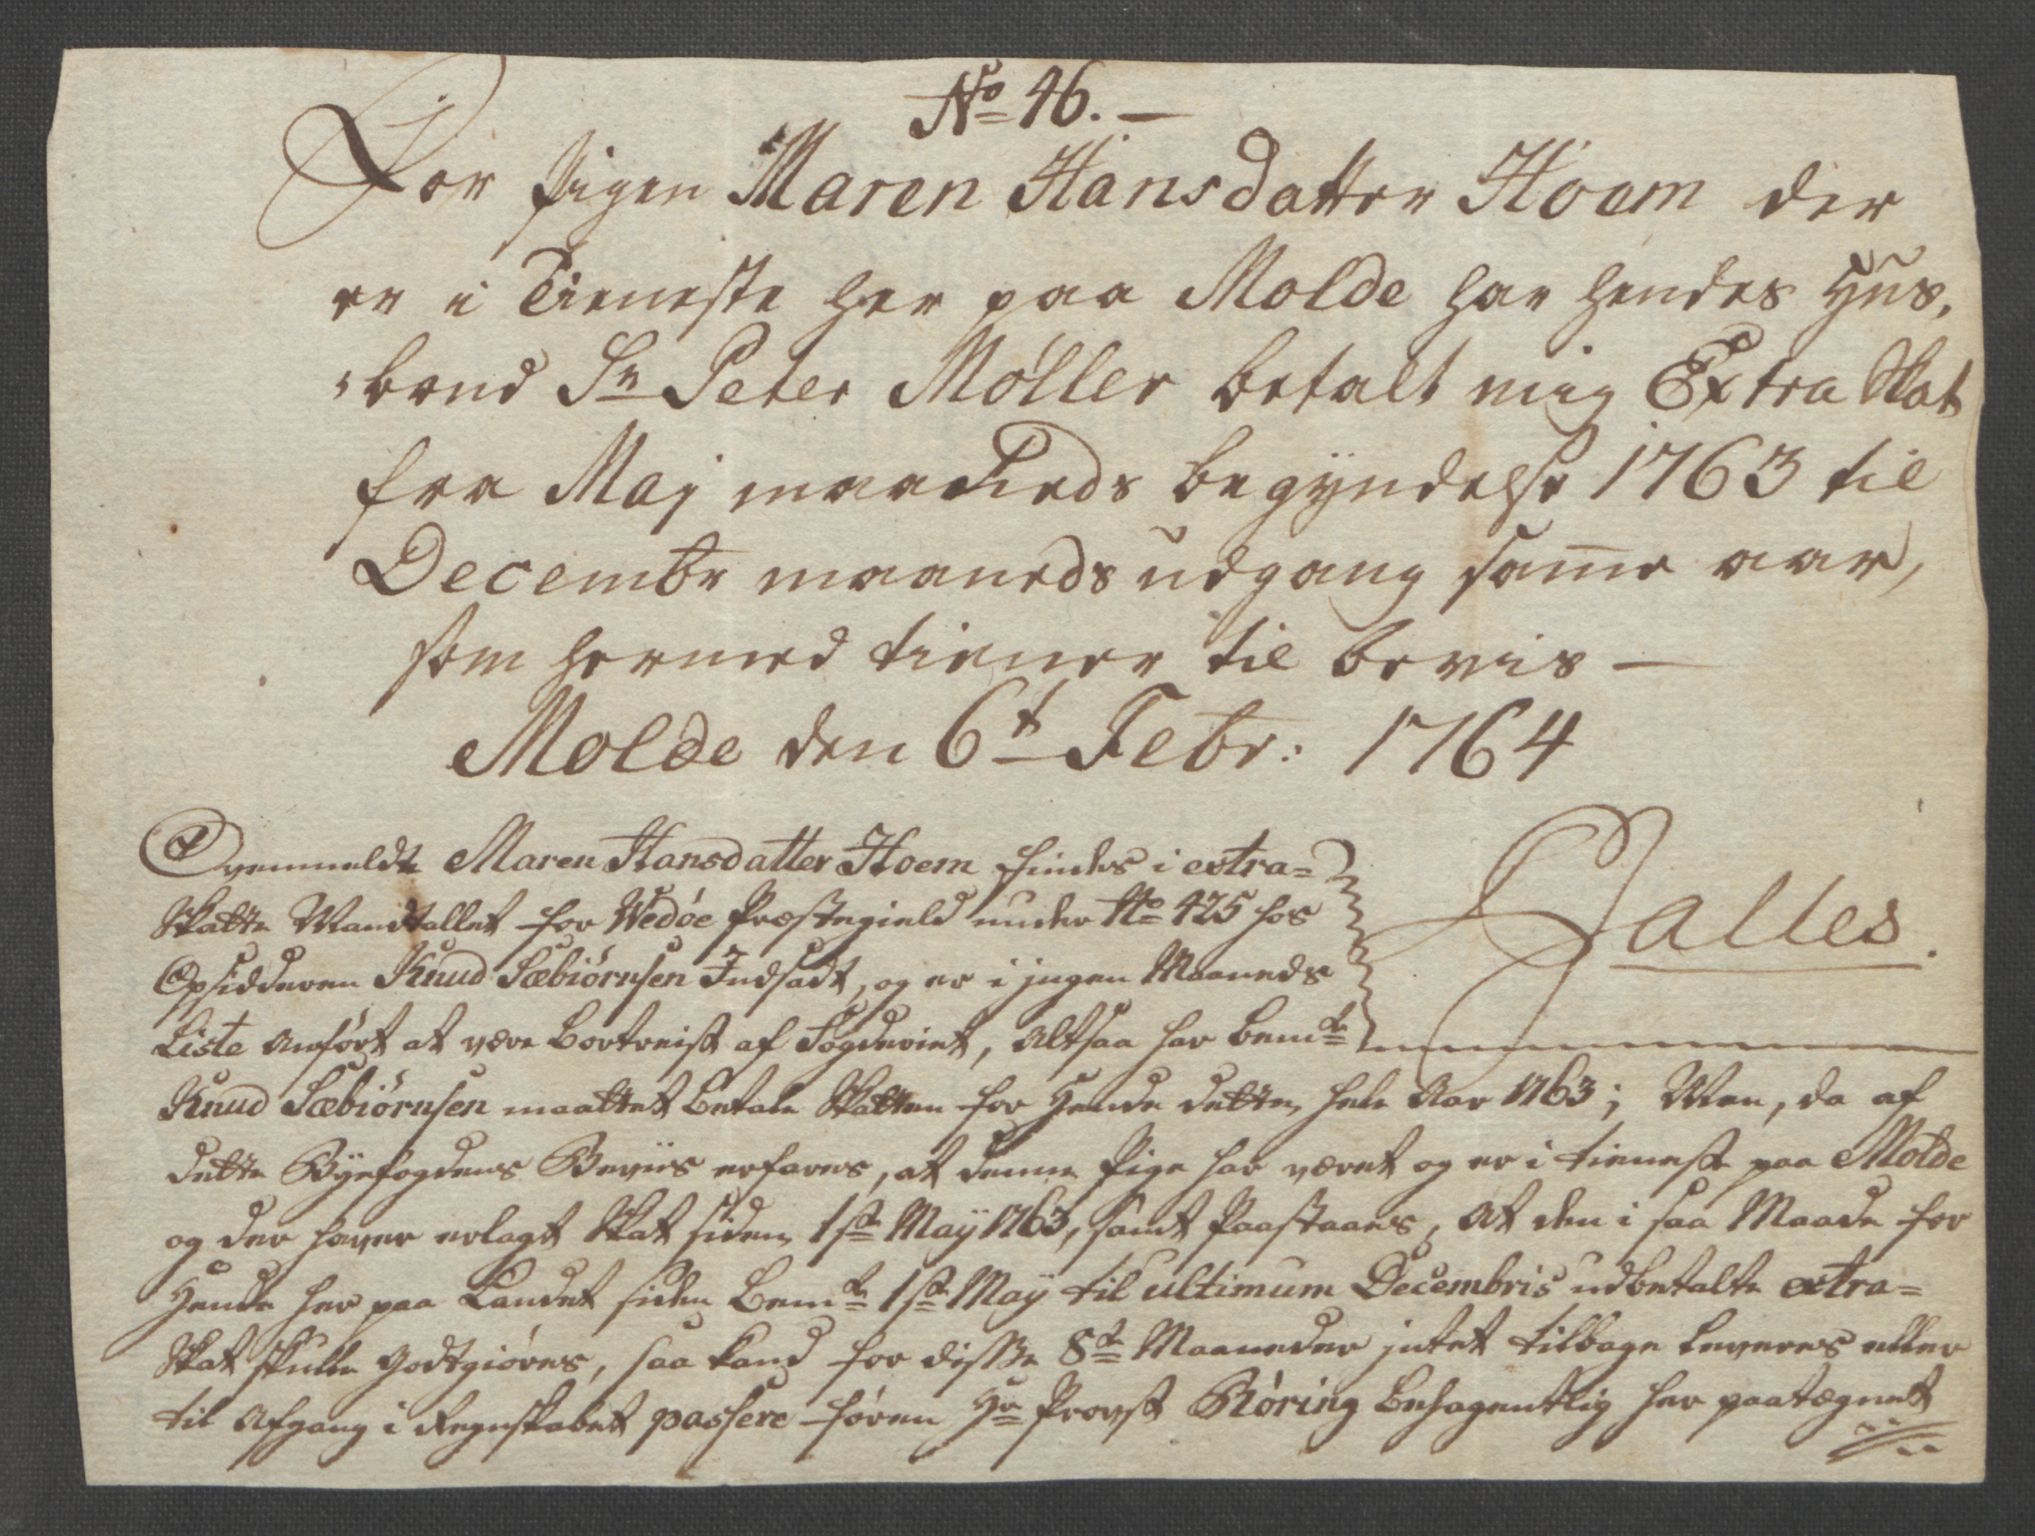 No 46. —
For Pigen Maren Hansdatter Hoem der
er i Tieneste her paa Molde har hendes Hus,
,bond Sr Peter Möller betalt mig Extra Skat
fra Maj maaneds begyndelse 1763 til
Decembr maaneds udgang samme aar,
som hermed tiener til bevis —
Molde den 6t Febr: 1764
Dalles.
Ovenmeldte Maren Hansdatter Hoem findes i extra=
Skatte Mandtallet for Wedøe Præstegield under No 425 hos
Opsidderen Knud Sæbiørnsen Indsadt, og er i jngen Maaneds
Liste Anført at være bortreist af Fogderiet, Altsaa har bemte
Knud Sæbiørnsen maattet betale Skatten for Hende dette hele Aar 1763; Men, da af
dette Byefogdens Beviis erfares, at denne Pige har været og er i tieneste paa Molde
og der haver erlagt Skat siden 1ste Maÿ 1763, samt Paastaaes, At den i saa Maade for
Hende her paa Landet siden Bemte 1ste Maÿ til ultimum Decembris udbetalte extra=
Skat skulle Godtgiøres, saa kand for disse 8te Maaneder jntet tilbage leveres eller
til Afgang i Regnskabet passere førend Hr Provst Röring behagentlig her paategnet